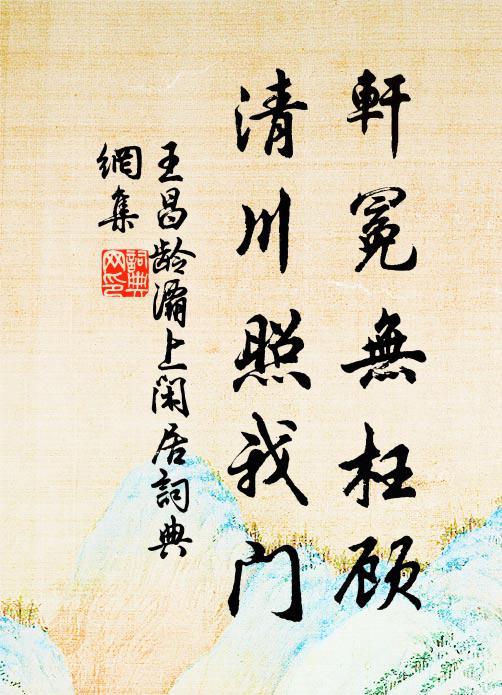 軒冕無枉顾
清川照我门
王昌龄灞上闲居詞典
網集
詞典
网印